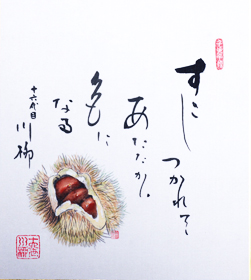 すこし
つかれて
あたたかい
色に
なる
十六代目
川柳